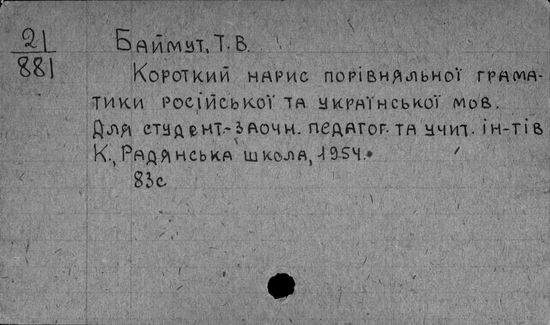 21
881
Баймут, Т. В.
Короткий нарис порівняльної грама-
тики російської та української мов.
Для студент-заочн. педагог. та учит. ін-тів
К., Радянська школа, 1954.
83с